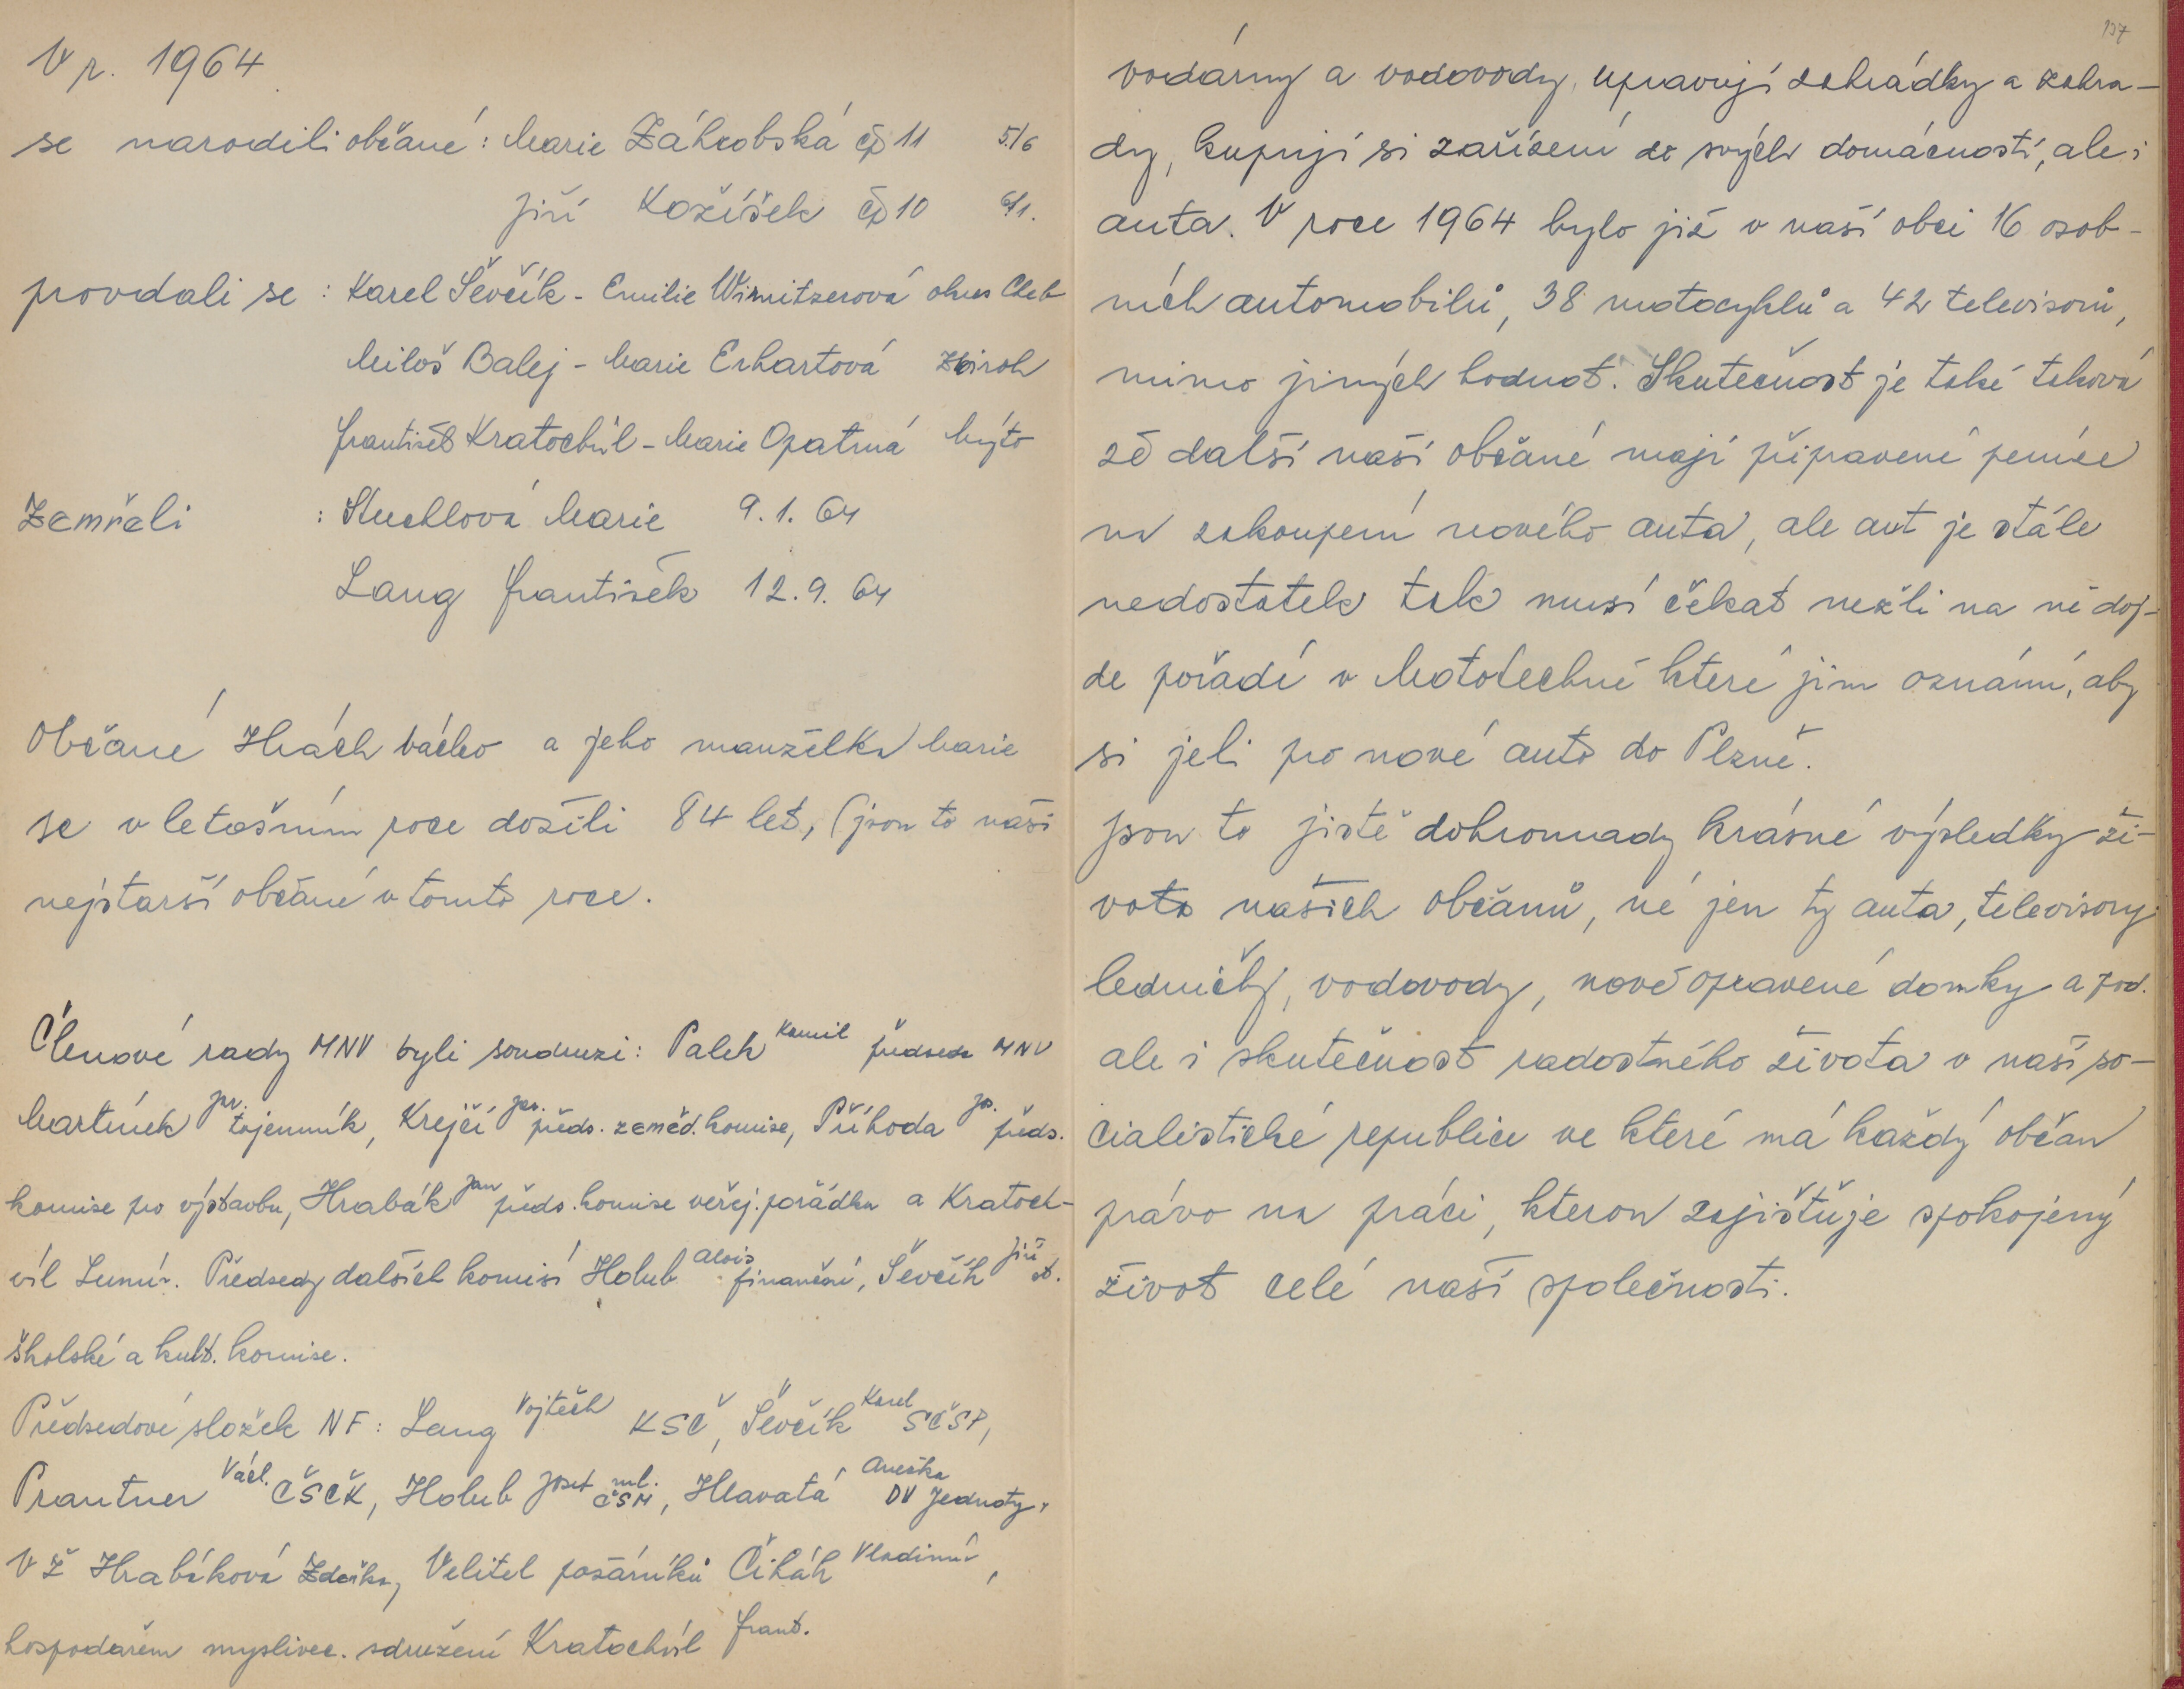 V r. 1964
se narodili občané: Marie Záhrobská čp 11 5/6
Jiří Kožíšek čp 10 6/1.
provdali se : Karel Ševčík - Emilie Wirnitzerová okres Cheb
Miloš Balej - Marie Erhartová Zbiroh
František Kratochvíl - Marie Opatrná Mýto
Zemřeli : Stuchlová Marie 9.1.64
Lang František 12.9.64
Občané Hrách Václav a jeho manželka Marie
se v letošním roce dožili 84 let, (jsou to naši
nejstarší občané v tomto roce.
Členové rady MNV byli soudruzi: Palek Kamil předseda MNV
Martínek tajemník, Krejčí předs. zeměd. komise, Příhoda předs.
komise pro výstavbu, Hrabák Jan předs. komise veřej. pořádku a Kratoch-
víl Lumír. Předsedy dalších komisí Holub Alois finanční, Ševčík Jiří st.
školské a kult. komise.
Předsedové složek NF: Lang Vojtěch KSČ, Ševčík Karel SČSP,
Prantner Václ. ČSČK, Holub Josef ml. ČSM, Hlavatá Anežka DV Jednoty,
VŽ Hrabáková Zdeňka, Velitel požárníků Čihák Vladimír,
hospodařem myslivec. sdružení Kratochvíl Frant.
137
vodárny a vodovody, upravují zahrádky a zahra-
dy, kupují si zařízení do svých domácností, ale i
auta. V roce 1964 bylo již v naší obci 16 osob-
ních automobilů, 38 motocyklů a 42 televisorů,
mimo jiných hodnot. Skutečnost je také taková
že další naši občané mají připravené peníze
na zakoupení nového auta, ale aut je stále
nedostatek tak musí čekat nežli na ně doj-
de pořadí v Mototechně které jim oznámí, aby
si jeli pro nové auto do Plzně.
Jsou to jistě dohromady krásné výsledky ži-
vota našich občanů, né jen ty auta, televisory
ledničky, vodovody, nově opravené domky a pod.
ale i skutečnost radostného života v naší so-
cialistické republice ve které má každý občan
právo na práci, kterou zajišťuje spokojený
život celé naší společnosti.